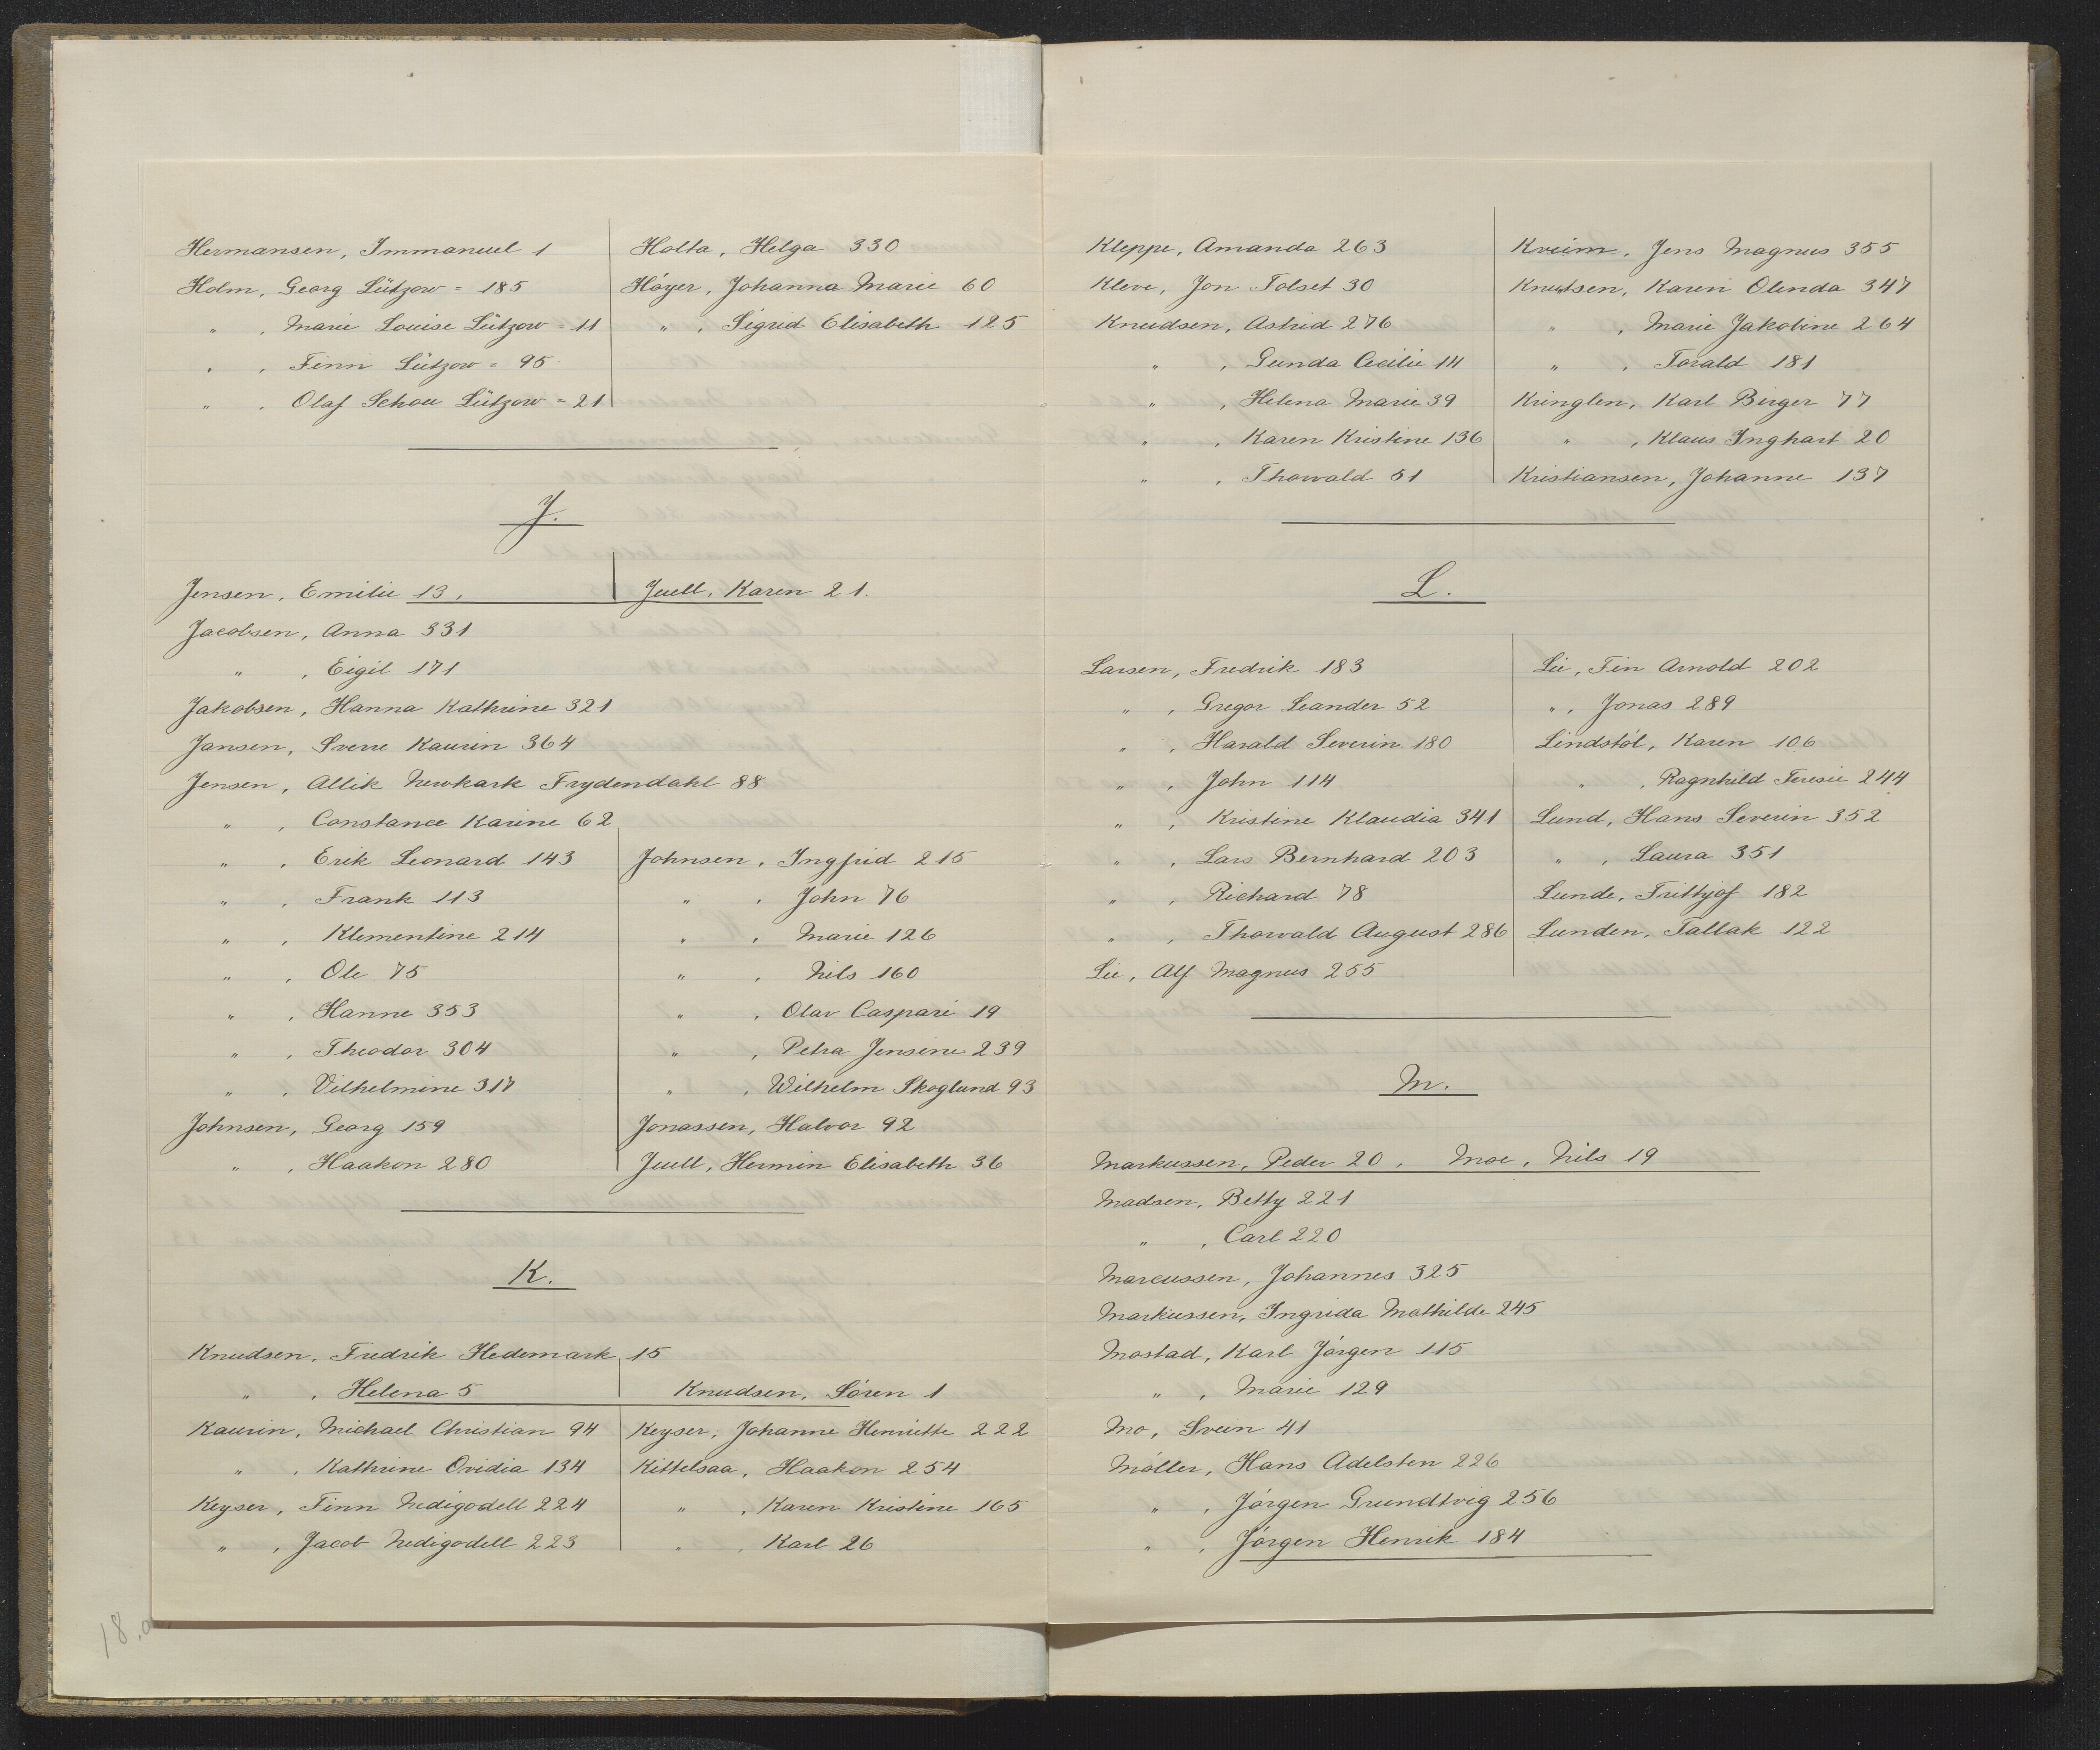 Hermansen, Immanuel 1
Holm, Georg Lützow = 185
" , Marie Louise Lützow = 11
" , Finn Lützow = 95
" , Olaf Schou Lützow = 21
Holta, Helga 330
Höyer, Johanna Marie 60
" , Sigrid Elisabeth 125
J.
Jensen, Emilie 13,
Juell, Karen 21.
Jacobsen, Anna 331
" , Eigil 171
Jakobsen, Hanna Kathrine 321
Jansen, Sverre Kaurin 364
Jensen, Allik Newkark Frydendahl 88
" , Constance Karine 62
" , Erik Leonard 143
" , Frank 113
" , Klementine 214
" , Ole 75
" , Hanne 353
" , Theodor 304
" , Vilhelmine 317
Johnsen, Georg 159
" , Haakon 280
Johnsen, Ingfrid 215
" , John 76
" , Marie 126
" , Nils 160
" , Olav Caspari 19
" , Petra Jensine 239
" , Wilhelm Skoglund 93
Jonassen, Halvor 92
Juell, Hermin Elisabeth 36
K.
Knudsen, Fredrik Hedemark 15
" , Helena 5
Knudsen, Sören 1
Kaurin, Michael Christian 94
" , Kathrine Ovidia 134
Keyser, Finn Nedigodell 224
" , Jacob Nedigodell 223
Keyser, Johanne Henriette 222
Kittelsaa, Haakon 254
" , Karen Kristine 165
" , Karl 26
18.a.
Kleppe, Amanda 263
Kleve, Jon Folset 30
Knudsen, Astrid 276
" , Gunda Cecilie 14
" , Helena Marie 39
" , Karen Kristine 136
" , Thorvald 51
Kveim, Jens Magnus 355
Knutsen, Karen Olenda 347
" , Marie Jakobine 264
" , Torald 181
Kringlen, Karl Birger 77
" , Klaus Inghart 20
Kristiansen, Johanne 137
L.
Larsen, Fredrik 183
" , Gregor Leander 52
" , Harald Severin 180
" , John 114
" , Kristine Klaudia 341
" , Lars Bernhard 203
" , Richard 78
" , Thorvald August 286
Lie, Alf Magnus 255
Lie, Fin Arnold 202
" , Jonas 289
Lindstöl, Karen 106
" , Ragnhild Teresie 244
Lund, Hans Severin 352
" , Laura 351
Lunde, Frithjof 182
Lunden, Tallak 122
M.
Markussen, Peder 20, Moe, Nils 19
Madsen, Betty 221
" , Carl 220
Marcussen, Johannes 325
Markussen, Ingrida Mathilde 245
Mostad, Karl Jörgen 115
" , Marie 129
Mo, Svein 41
Möller, Hans Adelsten 226
" , Jörgen Grundtvig 256
" , Jörgen Henrik 184